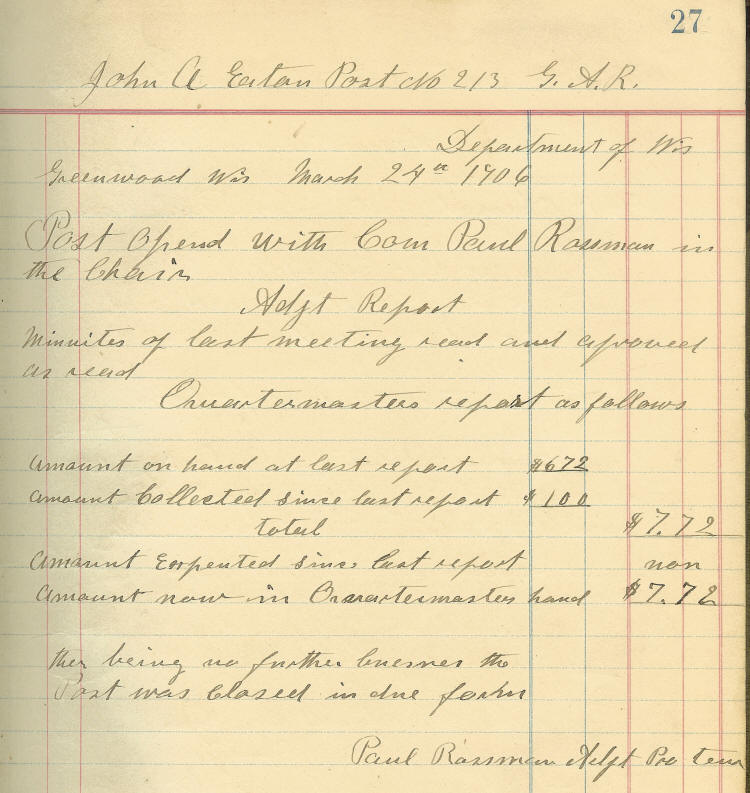 27
John A Eaton Post No 213 G. A. R.
Department of Wis
Greenwood Wis March 24th 1906
Post opend with Com Paul Rossman in
the Chair
Adjt Report
Minuites of last meeting read and aproved
as read
Quartermasters report as follows
Amount on hand at last report $672
Amount Collected since last report $100
total $7.72
Amount Expented since last report non
Amount now in Quartermasters hand $7.72
ther being no further buesnes the
Post was Closed in due form
Paul Rossman Adjt Pro tem